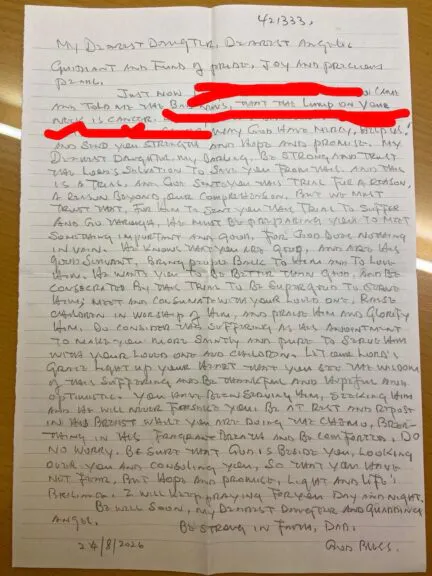 421333,
My Dearest Daugter, Dearest Angelic
Guidiant and Fund of pride, Joy and precious
pearl.
Just Now
and told me the Bad News, that the lump on your
Neck is cancer.
May God Have Mercy, Help us!
and send you strength and Hope and promise. My
Dearest Daughter, my Darling. Be strong and trust
the Lord's Solvation to save you from this. And this
is a trial, and God sent you this trial for a reason.
A reason beyond our comprehension. But we must
trust that, for Him to sent you this trial to suffer
and go through, He must be preparing you to meet
something important and good, for God does nothing
in vain. He knows that you are good, and are His
good servant, Bring people back to Him and to Love
Him. He wants you to be better than good, and be
consecrated by this trial to be supergood to serve
Him; meet and consumate with your loved one, raise
children in worship of Him, and praise Him and Glorify
Him. Do consider the suffering as His anointment
to make you more saintly and pure to serve Him
with your loved one and children. Let our Lord's
Grace light up your heart that you see the wisdom
of this suffering and be thankful and hopeful and
optimistic. You have been serving Him, seeking Him
and He will never forsake you. Be at rest and repose
in His breast while you are doing the chemo, brea-
thing in His fragrant breath and be comforted. Do
no worry. Be sure that God is beside you, looking
over you and consoling you, so that you have
not fear, but hope and promise, light and life's
brilliance. I will keep praying for you day and night.
Be well soon, my Dearest Daughter and Guarding
Angel.
Be strong in faith, Dad.
24/8/2026
God Bless.